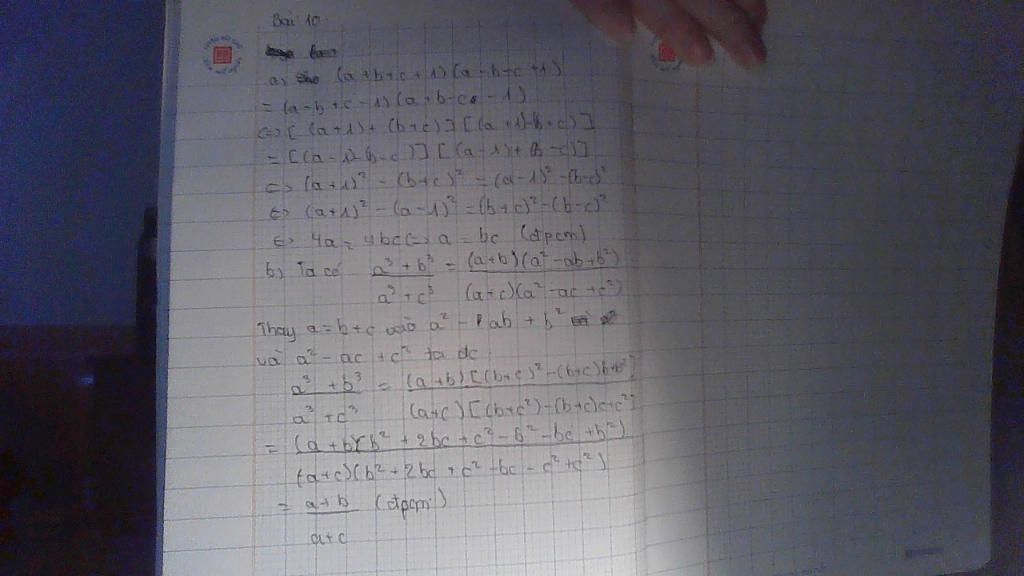 Bài 10.
a) (a+b+c+1)(a-b-c+1)
= (a-b+c-1)(a+b-c-1)
<=> [(a+1)+(b+c)][(a+1)-(b+c)]
= [(a-1)-(b-c)][(a-1)+(b-c)]
<=> (a+1)² - (b+c)² = (a-1)² - (b-c)²
<=> (a+1)² - (a-1)² = (b+c)² - (b-c)²
<=> 4a = 4bc <=> a = bc (đpcm)
b) Ta có a³+b³ = (a+b)(a²-ab+b²)
a³+c³ (a+c)(a²-ac+c²)
Thay a = b+c vào a² - ab + b²
và a² - ac + c² ta dc
a³+b³ = (a+b)[(b+c)²-(b+c)b+b²]
a³+c³ (a+c)[(b+c²)-(b+c)c+c²]
= (a+b)(b²+2bc+c²-b²-bc+b²)
(a+c)(b²+2bc+c²-bc-c²+c²)
= a+b (đpcm)
a+c